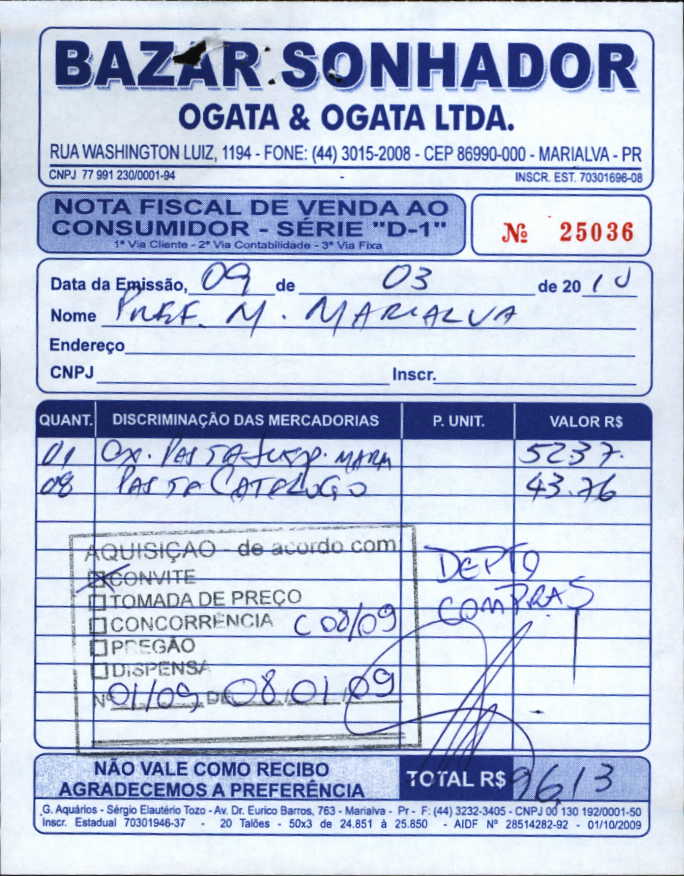 BAZAR SONHADOR
OGATA & OGATA LTDA.
RUA WASHINGTON LUIZ, 1194 - FONE: (44) 3015-2008 - CEP 86990-000 - MARIALVA - PR
CNPJ 77 991 230/0001-94 INSCR. EST. 70301696-08
NOTA FISCAL DE VENDA AO
CONSUMIDOR - SÉRIE "D-1"
1ª Via Cliente - 2ª Via Contabilidade - 3ª Via Fixa
Nº 25036
Data da Emissão, 09 de 03 de 2010
Nome PREF. M. MARIALVA
Endereço
CNPJ Inscr.
QUANT. DISCRIMINAÇÃO DAS MERCADORIAS P. UNIT. VALOR R$
01 CX. PASTA SUSP. MARM 5237.
08 PASTA CATALOGO 43.76
AQUISIÇAO - de acordo com
CONVITE
TOMADA DE PREÇO
CONCORRÊNCIA C 08/09
PREGÃO
DISPENSA
Nº 01/09, DE 08/01/09
DEPTO
COMPRAS
NÃO VALE COMO RECIBO
AGRADECEMOS A PREFERÊNCIA
TOTAL R$ 96,13
G. Aquários - Sérgio Elautério Tozo - Av. Dr. Eurico Barros, 763 - Marialva - Pr - F: (44) 3232-3405 - CNPJ 00 130 192/0001-50
Inscr. Estadual 70301946-37 - 20 Talões - 50x3 de 24.851 à 25.850 - AIDF Nº 28514282-92 - 01/10/2009